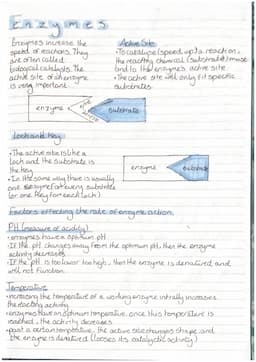 Enzymes
Enzymes increase the
speed of reactions. They
are often called
biological catalysts. The
active site of an enzyme
is very important.
Active Site
• To catalyse (speed up) a reaction,
the reacting chemical (substrate) must
bind to the enzymes active site
• The active site will only fit specific
substrates.
enzyme
active site
substrate
Lock and Key
• The active site is like a
lock and the substrate is
the key
• In the same way there is usually
one enzyme for every substrate
(or one key for each lock)
enzyme
substrate
Factors effecting the rate of enzyme action.
PH (measure of acidity)
• enzymes have a optimum pH
• If the pH changes away from the optimum pH, then the enzyme
activity decreases
• If the pH is too low or too high, then the enzyme is denatured and
will not function.
Temperature
• increasing the temperature of a working enzyme initially increases
the reacting activity
• enzymes have an optimum temperature, once this temperature is
reached, the activity decreases
• past a certain temperature, the active site changes shape, and
the enzyme is denatured (looses its catalytic activity)